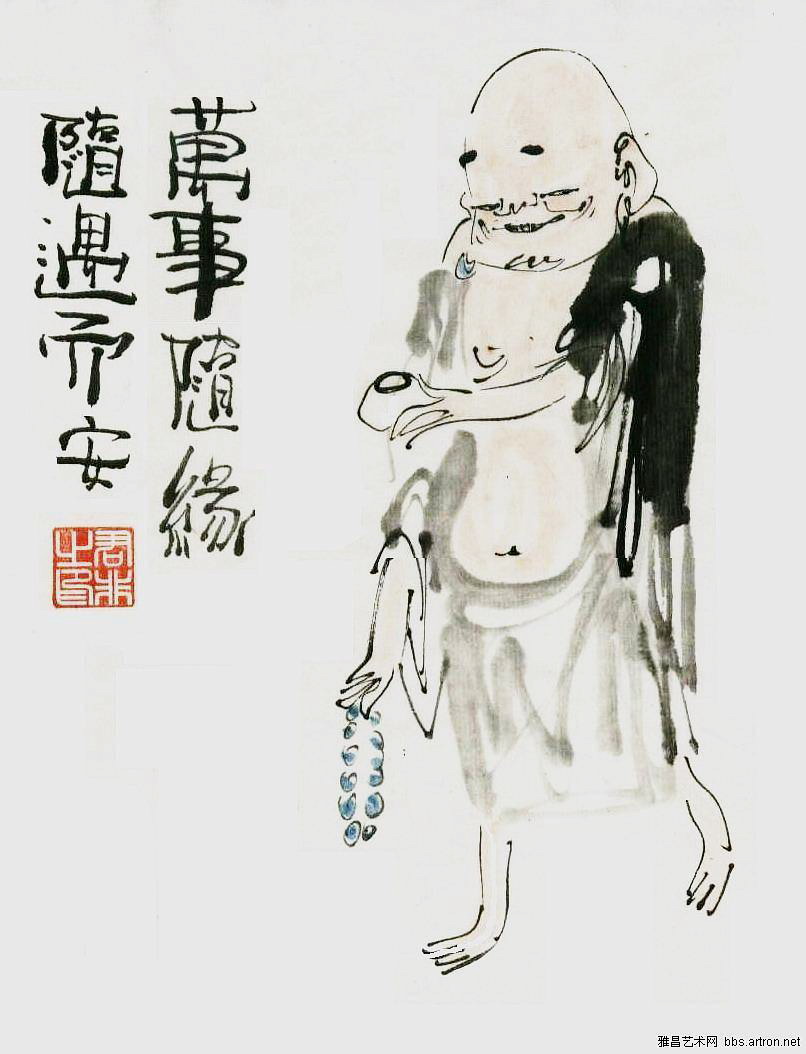 萬事隨緣
隨遇而安
雅昌艺术网 bbs.artron.net